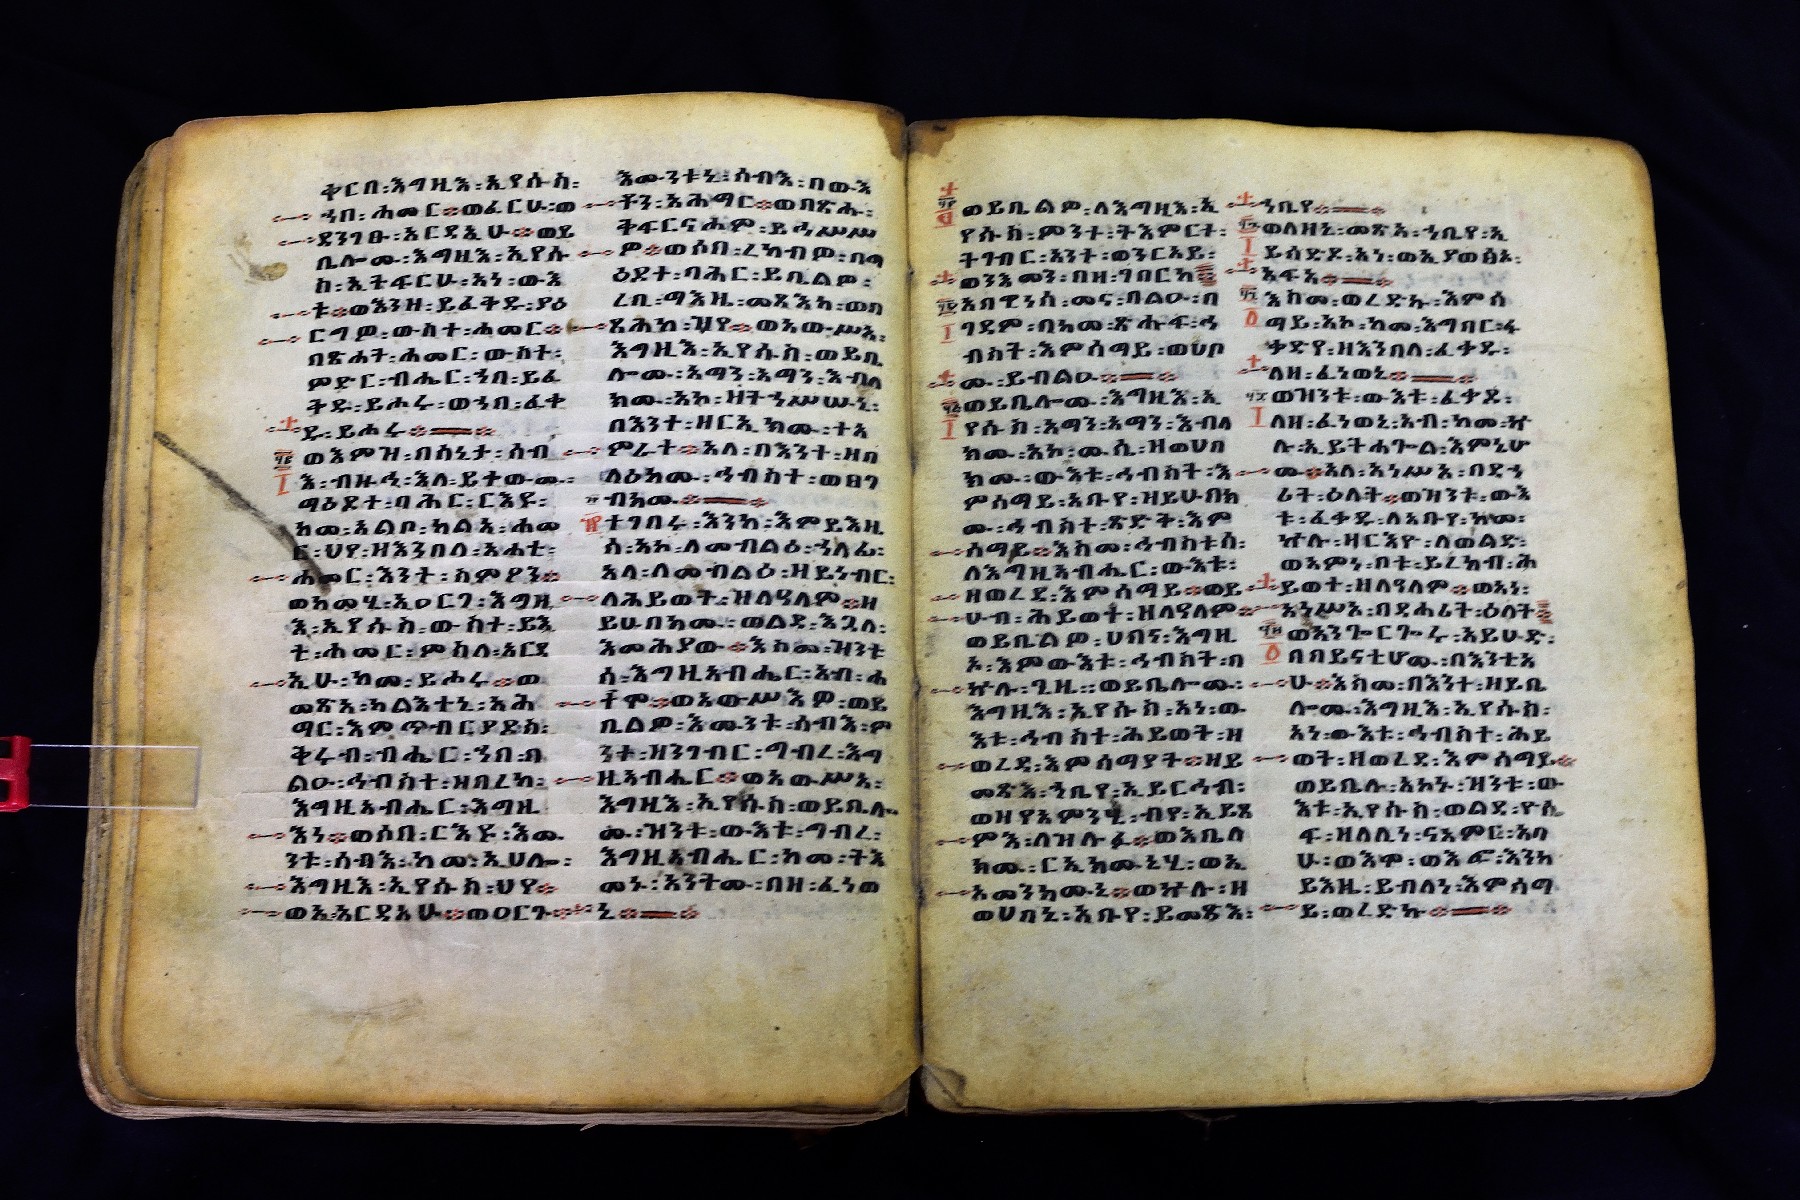 ቅርበ፡እግዚእ፡ኢየሱስ፡
ኀበ፡ሐመር፡ወፈርሁ፡ወ
ደንገፁ፡አርዳኢሁ፡ወይ
ቤሎሙ፡እግዚእ፡ኢየሱ
ስ፡ኢትፍርሁ፡አነ፡ውእ
ቱ፡ወእንዘ፡ይፈቅዱ፡ያዕ
ርግዎ፡ውስተ፡ሐመር፡
በጽሐት፡ሐመር፡ውስተ፡
ምድር፡ብሔር፡ኀበ፡ይፈ
ቅዱ፡ይሑሩ፡ወኀበ፡ፈቀ
ዱ፡ይሖሩ፡
ወእምዝ፡በሳኒታ፡ሰብ
እ፡ብዙኃ፡እለ፡ይቀውሙ፡
ማዕዶተ፡ባሕር፡ርእዩ፡
ከመ፡አልቦ፡ካልእ፡ሐመ
ር፡ህየ፡ዘእንበለ፡አሐቲ፡
ሐመር፡እንተ፡
ወከመሂ፡ኢዐርገ፡እግዚ
እ፡ኢየሱስ፡ውስተ፡ይእ
ቲ፡ሐመር፡ምስለ፡አርደ
ኢሁ፡ከመ፡ይሖሩ፡ወ
መጽአ፡ካልእተኒ፡አሕ
ማር፡እምጥብርያዶስ፡
ቅሩብ፡ብሔር፡ኀበ፡በ
ልዑ፡ኅብስተ፡ዘባረከ፡
እግዚአብሔር፡እግዚ
እነ፡ወሶበ፡ርእዩ፡እሙ
ንቱ፡ሰብእ፡ከመ፡ኢሀሎ፡
እግዚእ፡ኢየሱስ፡ህየ፡
ወኢአርዳኢሁ፡ወዐርጉ፡
እሙንቱኒ፡ሰብእ፡በውእ
ቶን፡አሕማር፡ወበጽሑ፡
ቅፍርናሖም፡ይኅሥሥ
ዎ፡ወሶበ፡ረከብዎ፡በማ
ዕዶተ፡ባሕር፡ይቤልዎ፡
ረቢ፡ማእዜ፡መጻእከ፡ወበ
ጻሕከ፡ዝየ፡ወአውሥአ፡
እግዚእ፡ኢየሱስ፡ወይቤ
ሎሙ፡አማን፡አማን፡እብለ
ክሙ፡አኮ፡ዘትኀሥሡኒ፡
በእንተ፡ዘርኢክሙ፡ተአ
ምረት፡አላ፡በእንተ፡ዘበ
ላዕክሙ፡ኅብስተ፡ወጸገ
ብክሙ፡
ተገበሩ፡እንከ፡እምይእዜ
ሰ፡አኮ፡ለመብልዕ፡ኀላፊ፡
አላ፡ለመብልዕ፡ዘይነብር፡
ለሕይወት፡ዘለዓለም፡ዘ
ይሁበክሙ፡ወልደ፡እጓለ፡
እመሕያው፡እስመ፡ዝንቱ
ሰ፡እግዚአብሔር፡አብ፡ሐ
ተሞ፡ወአውሥእዎ፡ወይ
ቤልዎ፡እሙንቱ፡ሰብእ፡ም
ንተ፡ዘንገብር፡ግብረ፡እግ
ዚአብሔር፡ወአውሥአ፡
እግዚእ፡ኢየሱስ፡ወይቤሎ
ሙ፡ዝንቱ፡ውእቱ፡ግብረ፡
እግዚአብሔር፡ከመ፡ትእ
መኑ፡እንትሙ፡በዘ፡ፈነወ
ኒ፡
ወይቤልዎ፡ለእግዚእ፡ኢ
የሱስ፡ምንተ፡ትእምርተ፡
ትገብር፡አንተ፡ወንርአይ፡
ወንእመን፡በዘ፡ገበርከ፡
አበዊነሰ፡መና፡በልዑ፡በ
ገዳም፡በከመ፡ጽሑፍ፡ኅ
ብስት፡እምሰማይ፡ወሀቦ
ሙ፡ይብልዑ፡
ወይቤሎሙ፡እግዚእ፡ኢ
የሱስ፡አማን፡አማን፡እብለ
ክሙ፡አኮ፡ሙሴ፡ዘወሀበ
ክሙ፡ውእቱ፡ኅብስት፡እ
ምሰማይ፡አቡየ፡ዝይሁበክ
ሙ፡ኅብስተ፡ጽድቅ፡እም
ሰማይ፡እስመ፡ኅብስቱሰ፡
ለእግዚአብሔር፡ውእቱ፡
ዘወረደ፡እምሰማይ፡ወይ
ሁብ፡ሕይወተ፡ዘለዓለም፡
ወይቤልዎ፡ሀበና፡እግዚ
ኦ፡እምውእቱ፡ኅብስት፡በ
ኵሉ፡ጊዜ፡፡ወይቤሎሙ፡
እግዚእ፡ኢየሱስ፡አነ፡ው
እቱ፡ኅብስተ፡ሕይወት፡ዘ
ወረደ፡እምሰማያት፡ዘይ
መጽእ፡ኀቤየ፡ኢይርኅብ፡
ወዘየአምን፡ብየ፡ኢይጸ
ምእ፡ለዝሉፉ፡ወእቤለ
ክሙ፡ርኢክሙኒሂ፡ወኢ
አመንክሙኒ፡ወኵሉ፡ዘ
ወሀበኒ፡አቡየ፡ይመጽእ፡
ኀቤየ፡
ወለዘኒ፡መጽአ፡ኀቤየ፡ኢ
ይሰድዶ፡አነ፡ወኢያወፅኦ፡
አፍአ፡
እስመ፡ወረድኩ፡እምሰ
ማይ፡አኮ፡ከመ፡እግበር፡ፈ
ቃድየ፡ዘእንበለ፡ፈቃዱ፡
ለዘ፡ፈነወኒ፡
ወዝንቱ፡ውእቱ፡ፈቃደ፡
ለዘ፡ፈነወኒ፡አብ፡ከመ፡ኵ
ሉ፡ኢይትሐጐል፡እምኔሆ
ሙ፡አላ፡አነሥአ፡በደኃ
ሪት፡ዕለት፡ወዝንቱ፡ውእ
ቱ፡ፈቃዱ፡ለአቡየ፡ከመ፡
ኵሉ፡ዘርእዮ፡ለወልድ፡
ወአምነ፡ቦቱ፡ይረከብ፡ሕ
ይወተ፡ዘለዓለም፡ወአነ፡
አነሥአ፡በደሐሪት፡ዕለት፡
ወአንጐርጐሩ፡አይሁድ፡
በበይናቲሆሙ፡በእንቲአ
ሁ፡እስመ፡በእንተ፡ዘይቤ
ሎሙ፡እግዚእ፡ኢየሱስ፡
አነ፡ውእቱ፡ኅብስተ፡ሕይ
ወት፡ዘወረደ፡እምሰማይ፡
ወይቤሉ፡አኮኑ፡ዝንቱ፡ው
እቱ፡ኢየሱስ፡ወልደ፡ዮሴ
ፍ፡ዘለሊነ፡ናአምር፡አባ
ሁ፡ወእሞ፡ወእፎ፡እንከ
ይእዜ፡ይብለነ፡እምሰማ
ይ፡ወረድኩ፡